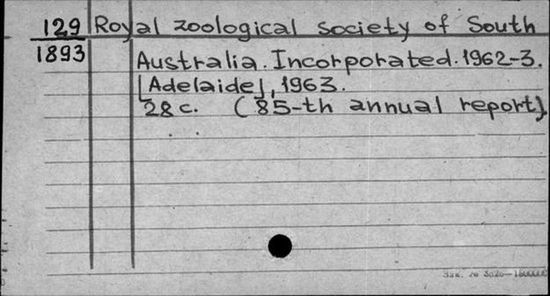 129 Royal zoological society of South
1893 Australia. Incorporated. 1962-3.
[Adelaide], 1963.
28 c. (85-th annual report).